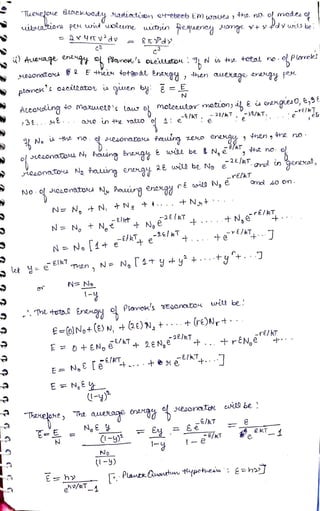 Therefore Blackbody radiation EM waves, the no. of modes of
vibrations per unit volume within frequency range ν to ν+dν will be:
= 2 × 4πν²dν = 8πν²dν
c³ c³
ii) Average energy of Planck's oscillator: If N is the total no. of Planck's
resonators & E their total energy, then average energy per
planck's oscillator is given by: Ē = E
N
According to Maxwell's law of molecular motion, if E is energies 0, E, 2E
, 3E ... rE ... are in the ratio of 1 : e^-E/kT : e^-2E/kT : ... e^-rE/kT
If N₀ is the no of resonators having zero energy, then, the no.
of resonators N₁ having energy E will be N₀e^-E/kT, the no. of
resonators N₂ having energy 2E will be N₀e^-2E/kT and in general,
No. of resonators Nr having energy rE will N₀e^-rE/kT and so on.
N = N₀ + N₁ + N₂ + ... + Nr + ...
N = N₀ + N₀e^-E/kT + N₀e^-2E/kT + ... + N₀e^-rE/kT + ...
N = N₀ [1 + e^-E/kT + e^-2E/kT + ... + e^-rE/kT + ...]
let y = e^-E/kT Then, N = N₀ [1 + y + y² + ... + y^r + ...]
or N = N₀
1-y
∴ The total Energy of Planck's resonator will be:
E = (0)N₀ + (E)N₁ + (2E)N₂ + ... + (rE)Nr + ...
E = 0 + EN₀e^-E/kT + 2EN₀e^-2E/kT + ... + rEN₀e^-rE/kT + ...
E = N₀E [e^-E/kT + ... + r e^-rE/kT + ...]
E = N₀Ey
(1-y)²
Therefore, The average energy of resonator will be:
Ē = E = N₀Ey = Ey = Ee^-E/kT = E
N (1-y)² 1-y 1-e^-E/kT e^E/kT - 1
N₀
(1-y)
Ē = hν [∵ Planck Quantum Hypothesis : E = hν]
e^hν/kT - 1